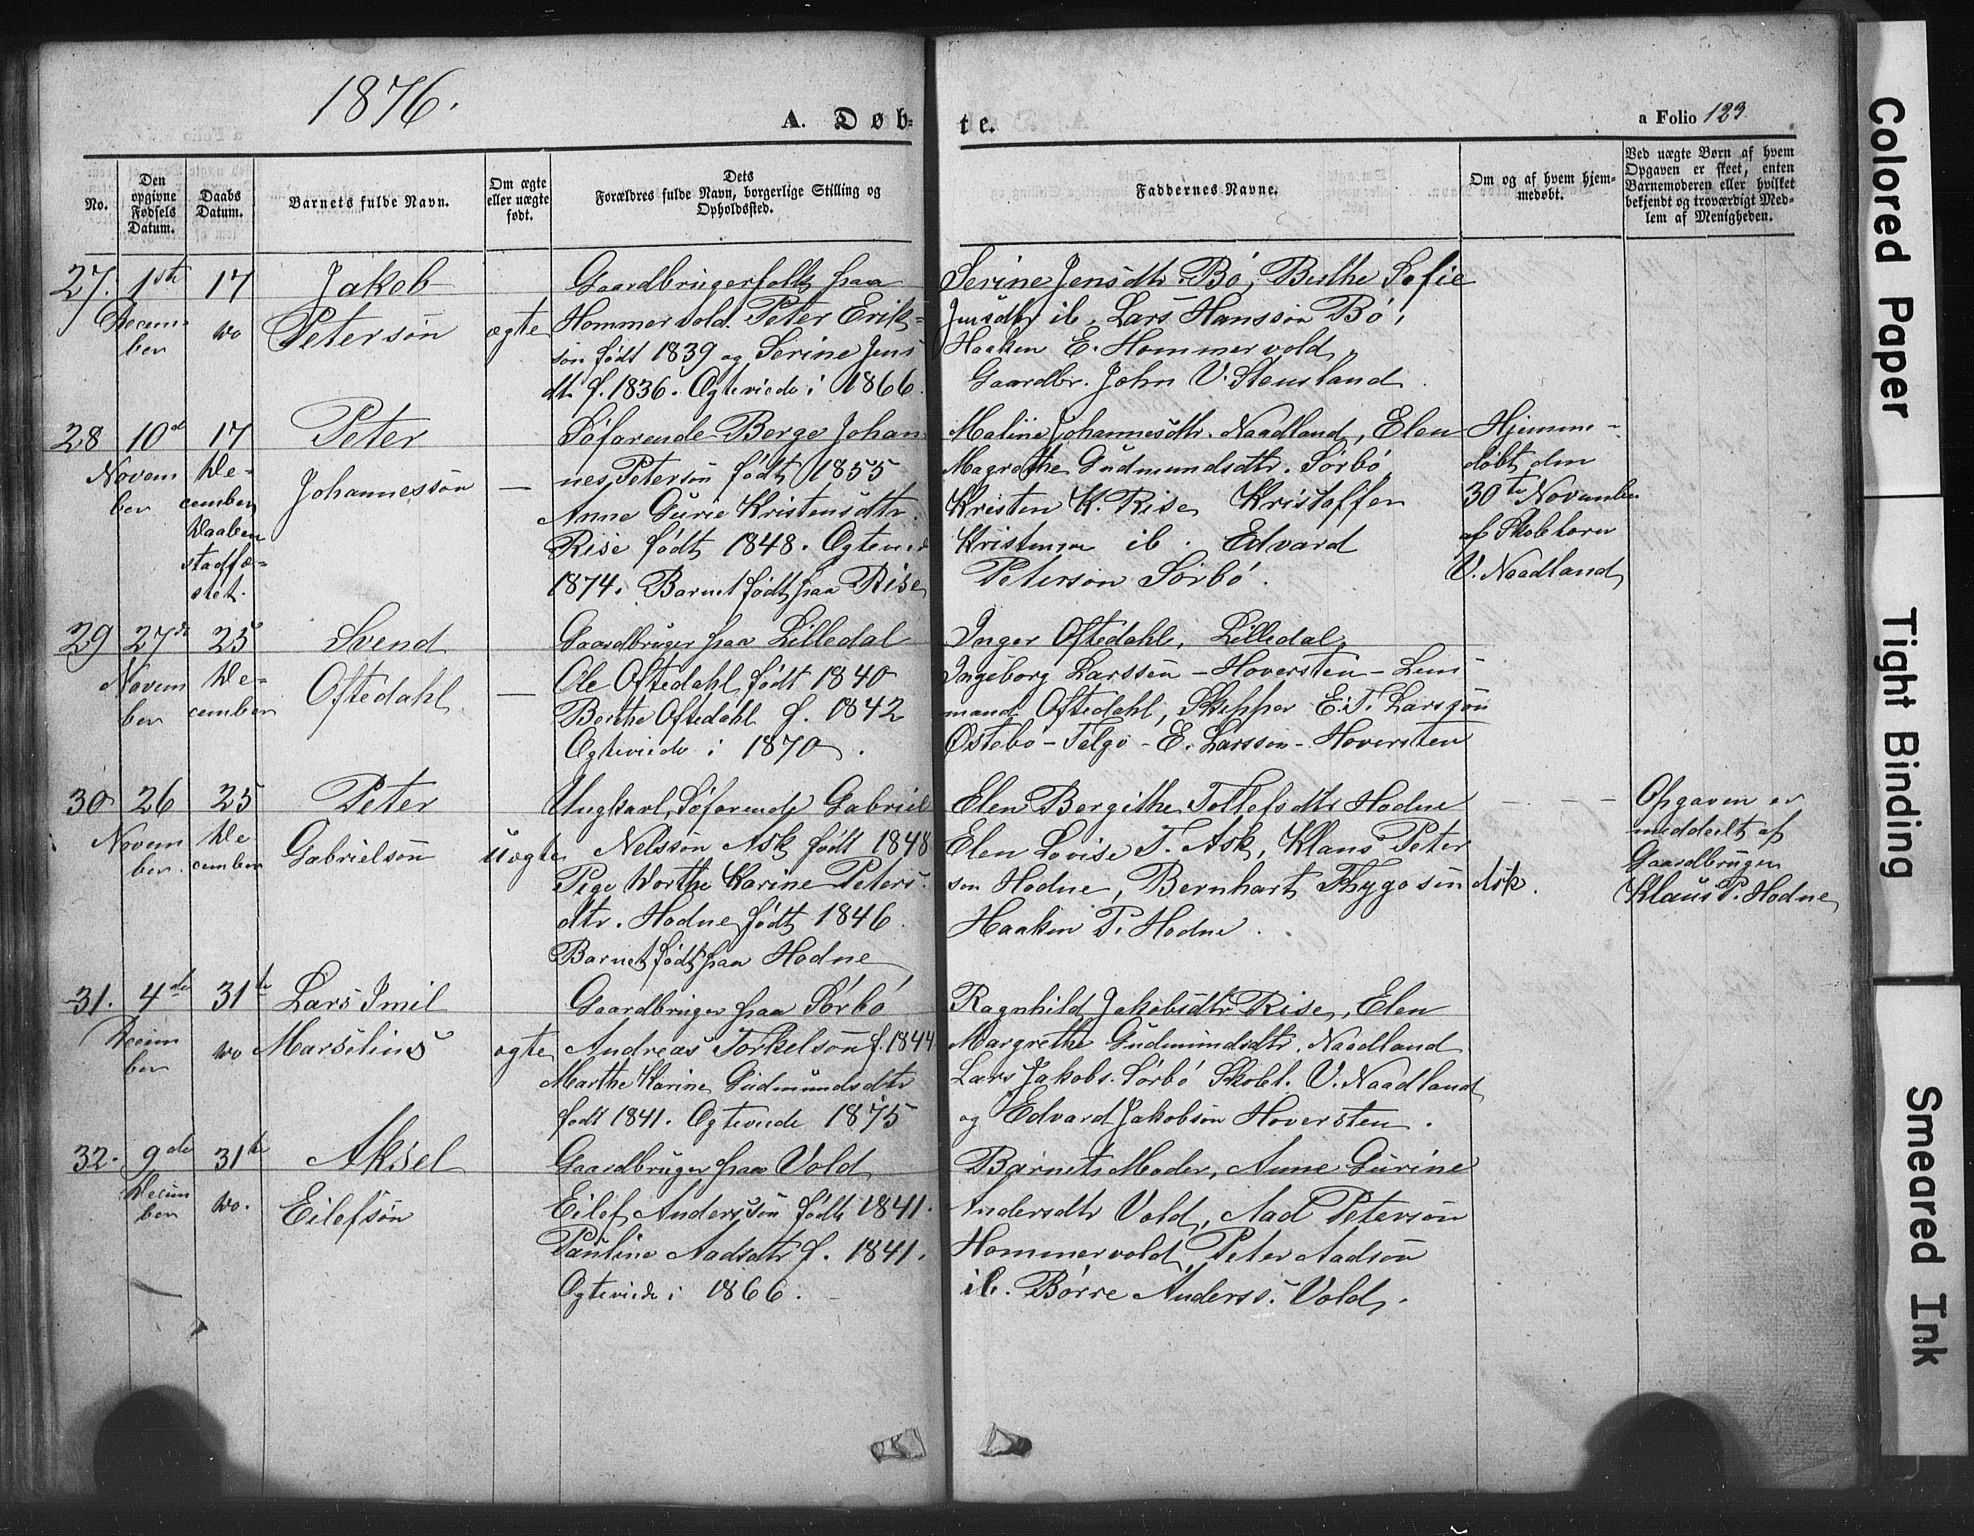 1876.
A. Døb-
te.
a Folio 123.
No.
Den
opgivne
Fødsels
Datum.
Daabs
Datum.
Barnets fulde Navn.
Om ægte
eller uægte
født.
Dets
Forældres fulde Navn, borgerlige Stilling og
Opholdssted.
Faddernes Navne.
Om og af hvem hjem-
medøbt.
Ved uægte Børn af hvem
Opgaven er skeet, enten
Barnemoderen eller hvilket
bekjendt og troværdigt Med-
lem af Menigheden.
27.
1ste
Decem-
ber
17
do
Jakob
Petersön
ægte
Gaardbrugerfolk paa
Hommersvold. Peter Erik-
sön født 1839 og Serine Jens
dtr f. 1836. Ægteviede i 1866.
Serine Jensdtr. Bö, Berthe Sofie
Jensdtr ib. Lars Hanssön Bö,
Haaken E. Hommersvold,
Gaardbr. John V. Stensland.
28
10de
Novem
ber
17
De-
cember
Daaben
stadfæ-
stet.
Peter
Johannessön
—
Söfarende Börge Johan
nes Petersön født 1855
Anne Gurie Kristensdtr.
Rise født 1848. Ægteviede
1874. Barnet født paa Rise
Maline Johannesdtr. Naadland, Elen
Magrethe Gudmundsdtr. Sørbö,
Kristen K. Rise, Kristoffer
Kristensen ib. Edvard
Petersön Sørbö.
Hjemme-
døbt den
30te November
af Skoleholder
V. Naadland
29
27de
Novem
ber
25
De-
cember
Svend
Oftedahl
—
Gaardbruger paa Lilledal
Ole Oftedahl født 1840
Berthe Oftedahl f. 1842
Ægteviede i 1870.
Inger Oftedahl, Lilledal,
Ingeborg Larssön – Hoversten – Lens
mand Oftedahl, Skipper E. T. Larssön
Östebö – Telgö – E. Larssön – Hoversten
30
26
Novem
ber
25
De
cember
Peter
Gabrielsön
uægte
Ungkarl, Söfarende Gabriel
Nelssön Ask født 1848
Pige Dorthe Karine Peters
dtr. Hodne født 1846.
Barnet født paa Hodne
Elen Bergithe Tollefsdtr Hodne
Elen Lovise T. Ask, Klaus Peter
sen Hodne, Bernhart Thygesön Ask.
Haaken P. Hodne.
– – –
Opgaven er
meddeelt af
Gaardbruger
Klaus P. Hodne
31.
4de
Decem
ber
31te
do
Lars Imil
Marselius
ægte
Gaardbruger paa Sørbö
Andreas Torkelsön f. 1844
Marthe Karine Gudmundsdtr
født 1841. Ægteviede 1875
Ragnhild Jakobsdtr Rise, Elen
Margrethe Gudmundsdtr. Naadland
Lars Jakobs. Sørbö Skohl. V. Naadland
og Edvard Jakobsön Hoversten.
32.
9de
Decem
ber
31te
do.
Aksel
Eilefsön
Gaardbruger paa Vold
Eilef Anderssön født 1841.
Pauline Aadsdtr f. 1841.
Ægteviede i 1866.
Barnets Moder, Anne Gurine
Andersdtr Vold, Aad Petersön
Hommersvold, Peter Aadsön
ib. Börre Anderss. Vold.
Colored Paper
Tight Binding
Smeared Ink